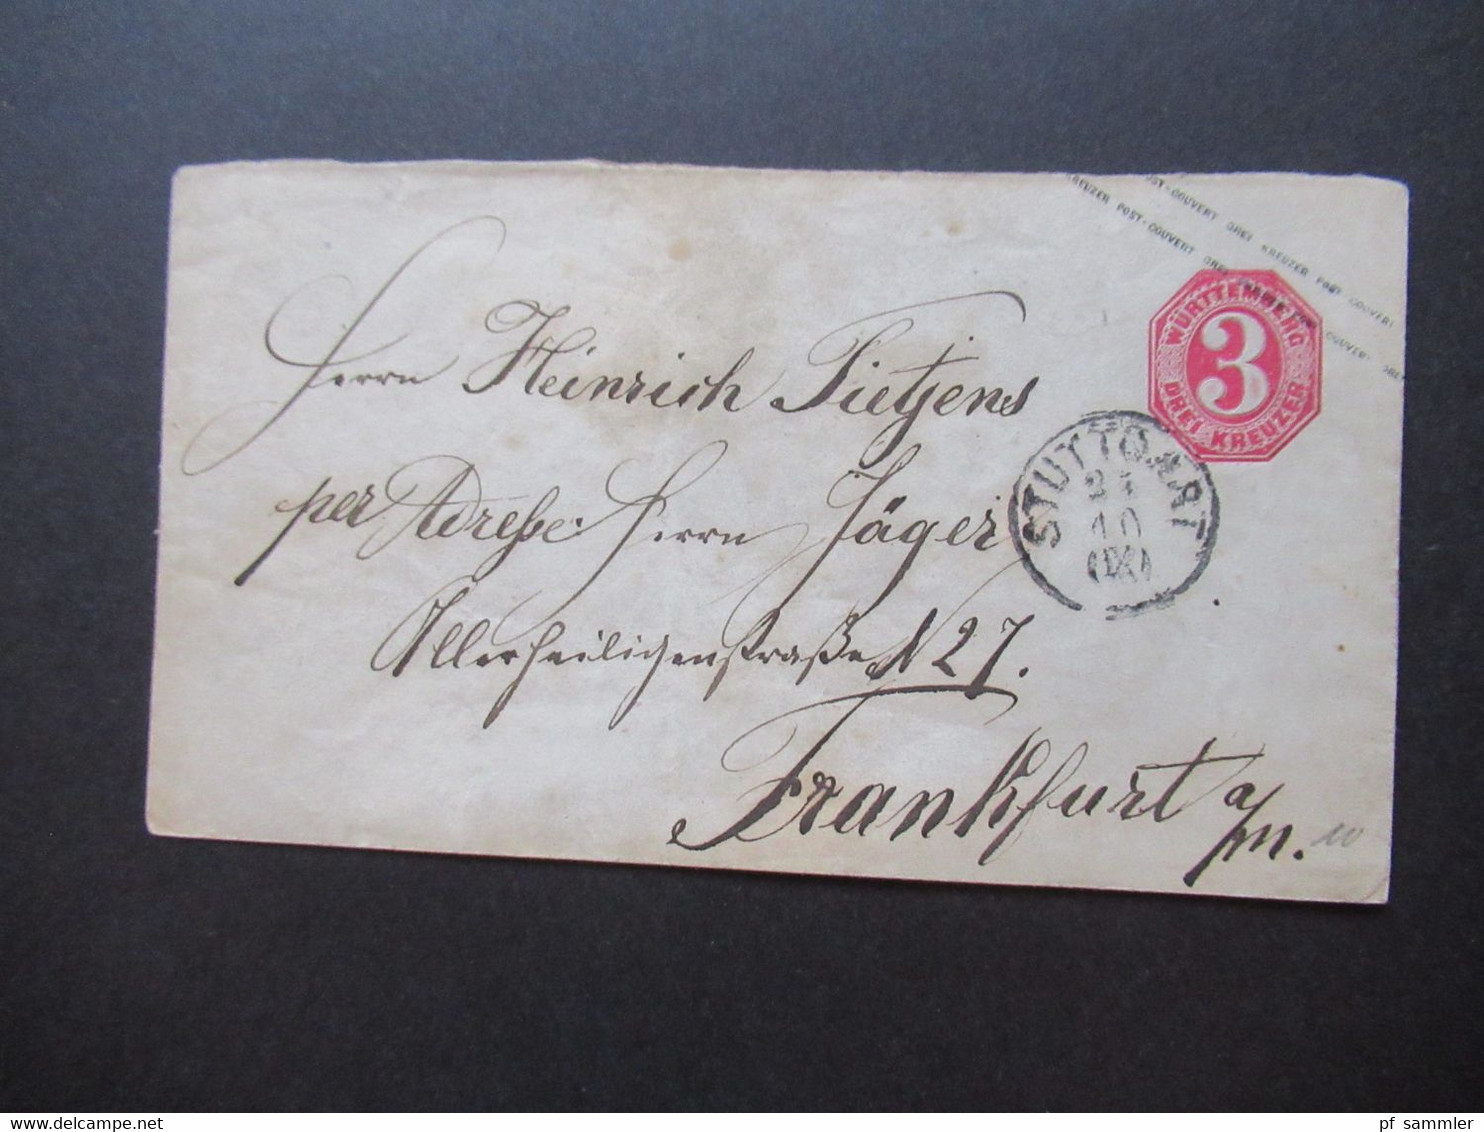 OST-COUVERT DREI KREUZER POST-COUVERT
KREUZER POST-COUVERT DREI
COUVERT DREI
WÜRTTEMBERG
3
DREI KREUZER
STUTTGART
10
(IX)
Herrn Heinrich Tietjens
per Adresse: Herrn Jäger
Allerheiligenstraße N 27.
Frankfurt a/m.
delcampe.net
pf_sammler